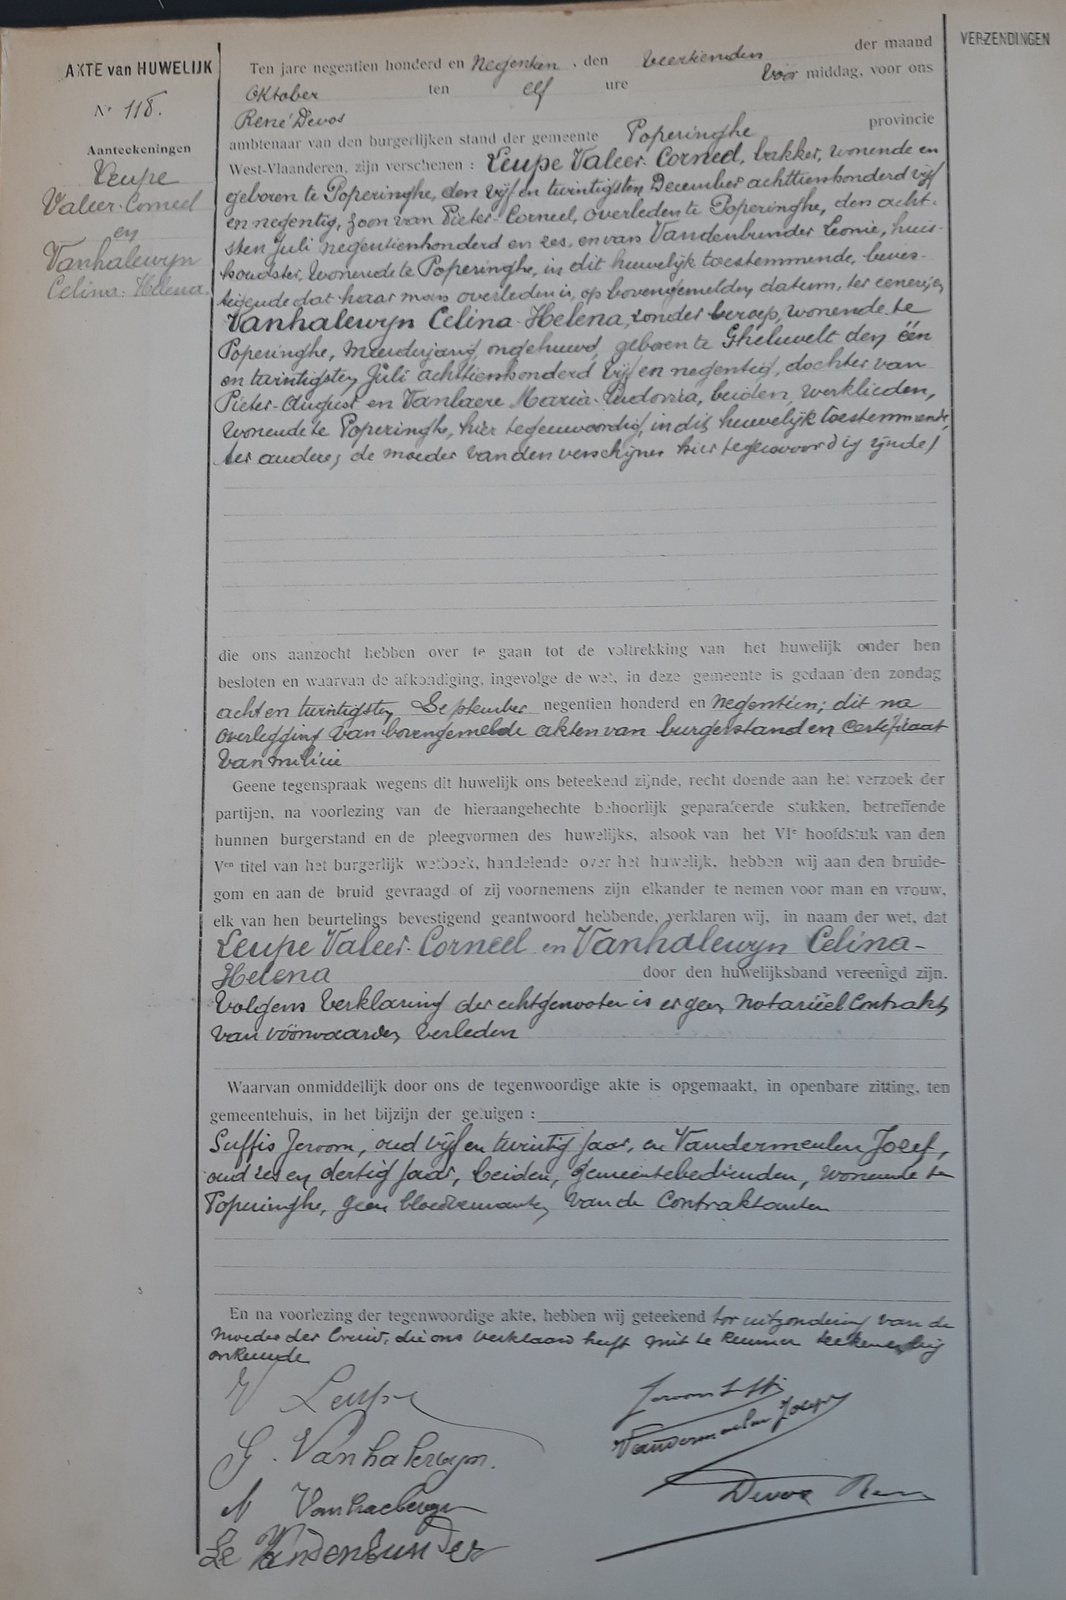 AKTE van HUWELIJK
N° 118.
Aanteekeningen
Leupe
Valeer-Corneel
en
Vanhalewyn
Celina-Helena.
VERZENDINGEN
Ten jare negentien honderd en Negentien, den veertienden der maand
Oktober ten elf ure voor middag, voor ons
René Devos
ambtenaar van den burgerlijken stand der gemeente Poperinghe provincie
West-Vlaanderen, zijn verschenen : Leupe Valeer-Corneel, bakker, wonende en
geboren te Poperinghe, den vijf en twintigsten December achttienhonderd vijf
en negentig, zoon van Pieter-Corneel, overleden te Poperinghe, den acht-
sten juli negentienhonderd en zes, en van Vandenbunder Leonie, huis-
houdster, wonende te Poperinghe, in dit huwelijk toestemmende, beves-
tigende dat haar man overleden is, op bovengemelden datum, ter eenerzijn
Vanhalewyn Celina-Helena, zonder beroep, wonende te
Poperinghe, meerderjarig, ongehuwd, geboren te Gheluvelt den één
en twintigsten Juli achttienhonderd vijf en negentig, dochter van
Pieter-August en Vanlaere Maria-Ludovica, beiden, werklieden,
wonende te Poperinghe, hier tegenwoordig, in dit huwelijk toestemmende,
ter andere; de moeder van den verschijner hier tegenwoordig zijnde/
die ons aanzocht hebben over te gaan tot de voltrekking van het huwelijk onder hen
besloten en waarvan de afkondiging, ingevolge de wet, in deze gemeente is gedaan den zondag
acht en twintigsten September negentien honderd en Negentien; dit na
overlegging van bovengemelde akten van burgerstand en certifikaat
van milicie
Geene tegenspraak wegens dit huwelijk ons beteekend zijnde, recht doende aan het verzoek der
partijen, na voorlezing van de hieraangehechte behoorlijk geparafeerde stukken, betreffende
hunnen burgerstand en de pleegvormen des huwelijks, alsook van het VIe hoofdstuk van den
Ven titel van het burgerlijk wetboek, handelende over het huwelijk, hebben wij aan den bruide-
gom en aan de bruid gevraagd of zij voornemens zijn elkander te nemen voor man en vrouw,
elk van hen beurtelings bevestigend geantwoord hebbende, verklaren wij, in naam der wet, dat
Leupe Valeer-Corneel en Vanhalewyn Celina-
Helena door den huwelijksband vereenigd zijn.
Volgens verklaring der echtgenooten is er geen Notariëel Contrakt
van voorwaarden verleden
Waarvan onmiddellijk door ons de tegenwoordige akte is opgemaakt, in openbare zitting, ten
gemeentehuis, in het bijzijn der getuigen :
Suffis Jeroom, oud vijf en twintig jaar, en Vandermeulen Jozef,
oud zes en dertig jaar, beiden, gemeentebedienden, wonende te
Poperinghe, geen bloedverwanten van de Contraktanten
En na voorlezing der tegenwoordige akte, hebben wij geteekend ter uitzondering van de
moeder der bruid, die ons verklaard heeft niet te kunnen teekenen, bij
onkunde
V Leupe
Jeroom Suffis
G. Vanhalewyn.
Vandermeulen Jozef
Vanhalewyn
Devos René
Le Vandenbunder